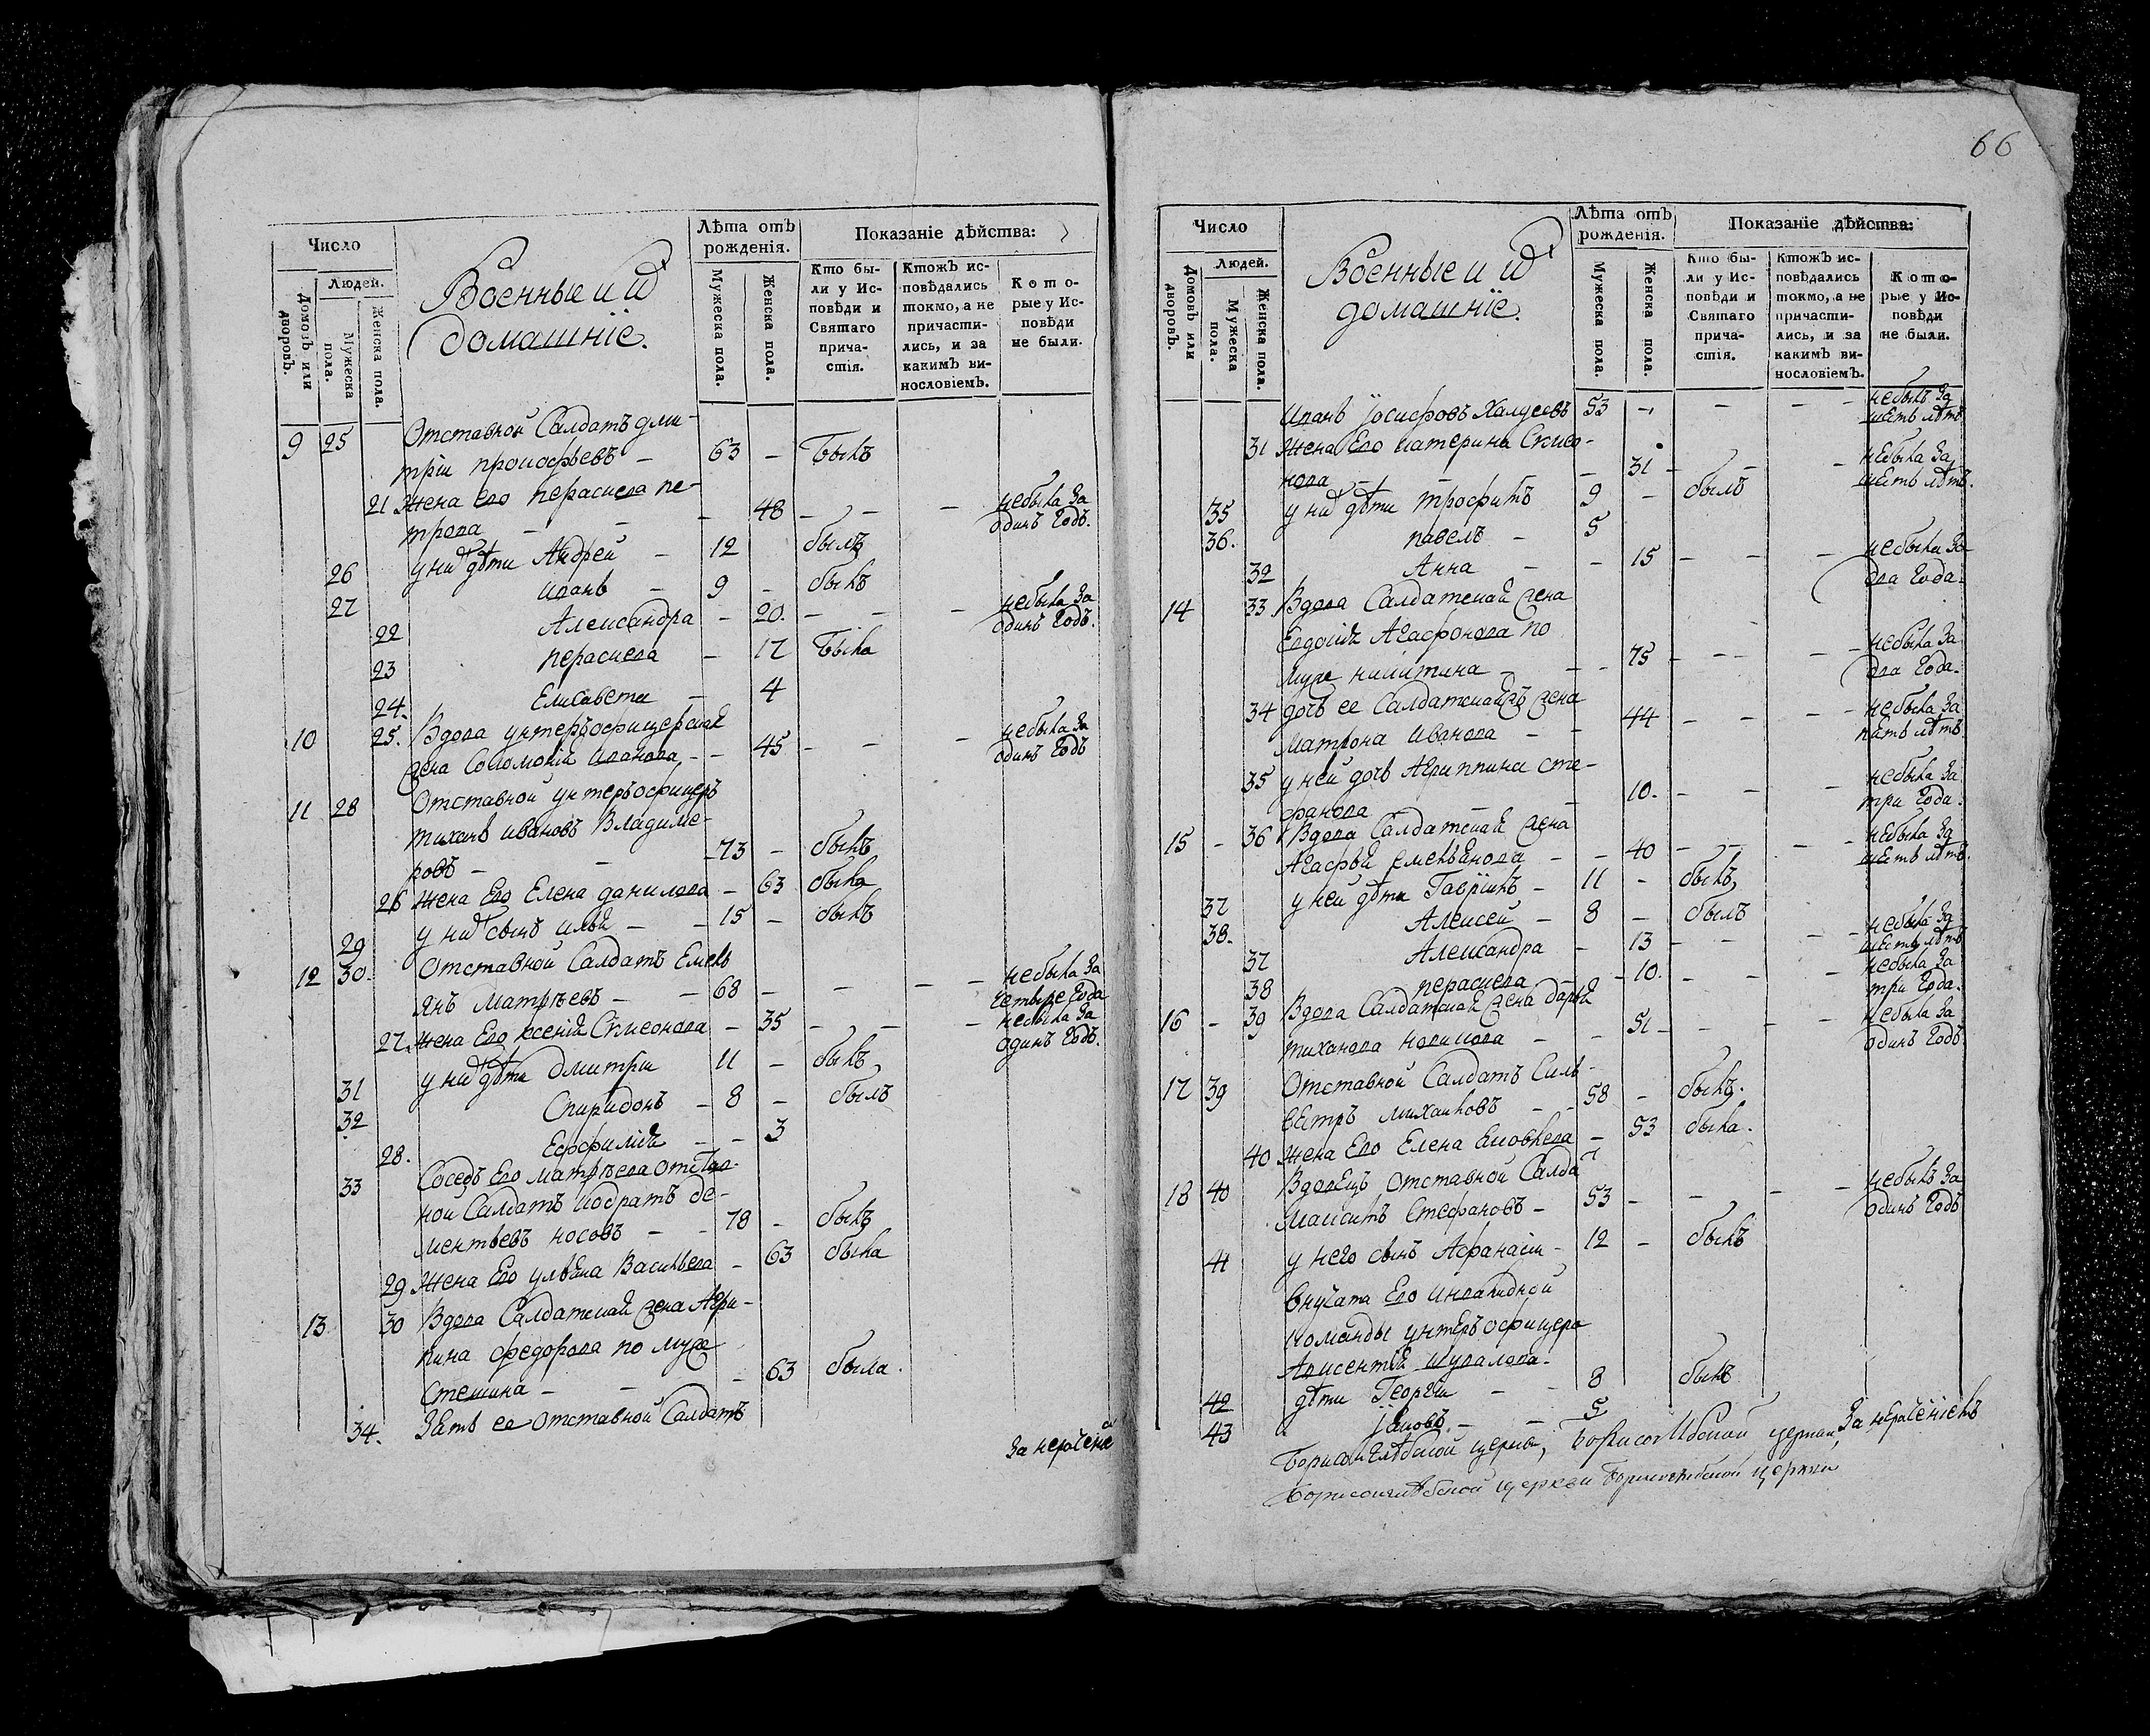 Число
Людей.
Домовъ или дворовъ.
Мужеска пола.
Женска пола.
Военные и ихъ
домашніе.
Лѣта отъ рожденія.
Мужеска пола.
Женска пола.
Показаніе дѣйства:
Кто были у Исповѣди и Святаго причастія.
Ктожъ исповѣдались токмо, а не причастились, и за какимъ винословіемъ.
Которые у Исповѣди не были.
9 25 Отставной Салдатъ дми-
трiи прокофьевъ - 63 - Былъ
21 Жена его парасковья пе-
трова - - - 48 - - - небыла за одинъ годъ.
26 у нихъ дѣти Андрей - 12 былъ
27 иванъ - 9 - былъ
22 Александра - 20. - - - небыла за одинъ годъ.
23 параскева - 17 Была
24. Елисавета - 4
10 25. Вдова унтеръофицерская
жена Соломонія иванова - - 45 - - - небыла за одинъ годъ
11 28 Отставной унтеръофицеръ
тиханъ ивановъ Владиме-
ровъ - - 73 - былъ
26 Жена Его Елена данилова - 63 была
29 у нихъ сынъ илья - - 15 - былъ
12 30. Отставной Салдатъ Емель
янъ Матвѣевъ - - 68 - - - небыла за четыре года
27. Жена Его ксенія Симеонова - 35 - - - небыла за одинъ годъ.
31 у нихъ дѣти дмитріи 11 - былъ
32 Спиридонъ - 8 - былъ
28. Евфимія - - 3
33 Соседъ Его матвѣева отстав-
ной Салдатъ кодратъ де-
ментьевъ носовъ - - 78 - былъ
29 Жена Его ульяна Васильева - 63 была
13 30 Вдова Салдатская жена Агри-
пина федорова по мужѣ
Стешина - - - 63 была.
34. Зять ее отставной Салдатъ
За нераченіе
66
Число
Людей.
Домовъ или дворовъ.
Мужеска пола.
Женска пола.
Военные и ихъ
домашніе.
Лѣта отъ рожденія.
Мужеска пола.
Женска пола.
Показаніе дѣйства:
Кто были у Исповѣди и Святаго причастія.
Ктожъ исповѣдались токмо, а не причастились, и за какимъ винословіемъ.
Которые у Исповѣди не были.
Иванъ Іосифовъ 53 - - - - небылъ за шесть лѣтъ
31 Жена Его катерина Симео-
нова - - - 31 - - - небыла за шесть лѣтъ.
35 у нихъ дѣти трофимъ 9 - былъ
36. павелъ - 5
32 Анна - - 15 - - - небыла за два года.
14 33 Вдова Салдатская жена
Евдокія Агафонова по
муже никитина - - - 75 - - - небыла за два года.
34 дочь ее Салдатская жена
матрона иванова - - 44 - - - небыла за пять лѣтъ
35 у ней дочь Агриппина сте-
фанова - - 10. - - - небыла за три года.
15 - 36 Вдова Салдатская жена
Агафья емельянова - - 40 - - - небыла за шесть лѣтъ.
37 у ней дѣти Гавріилъ - 11 - былъ
38. Алексей - 8 - былъ
37 Александра - 13 - - - небыла за шесть лѣтъ
38 параскева - 10. - - - небыла за три года.
16 - 39 Вдова Салдатская жена дарья
тиханова новикова - - 51 - - - небыла за одинъ годъ.
17 39 Отставной Салдатъ Силь-
вестръ михаиловъ - - 58 - былъ.
40 Жена Его Елена Яковлева - 53 была.
18 40 Вдовецъ отставной Салда
Максимъ Стефановъ - 53 - - - небылъ за одинъ годъ
41 у него сынъ Афанасіи - 12 - былъ
внучата Его инвалидной
команды унтеръофицера
Авксентія шувалова -
42 дѣти Георгіи - - 8 былъ
43 Іаковъ. - - 5
Борисоглѣбской церкви, Борисоглѣбской церкви, За нераченіемъ
Борисоглѣбской церкви Борисоглѣбской церкви